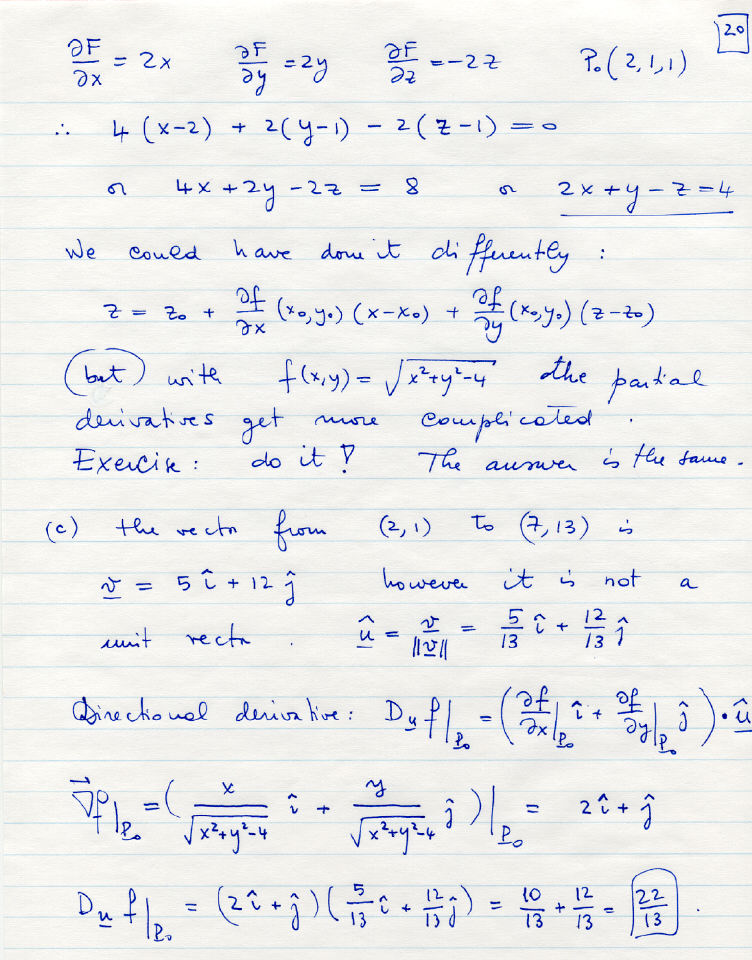 20
∂F/∂x = 2x ∂F/∂y = 2y ∂F/∂z = -2z P₀(2,1,1)
∴ 4(x-2) + 2(y-1) - 2(z-1) = 0
or 4x + 2y - 2z = 8 or 2x + y - z = 4
We could have done it differently :
z = z₀ + ∂f/∂x (x₀,y₀) (x-x₀) + ∂f/∂y (x₀,y₀) (z-z₀)
(but) with f(x,y) = √(x²+y²-4) the partial
derivatives get more complicated .
Exercise : do it ! The answer is the same .
(c) the vector from (2,1) to (7,13) is
v = 5 î + 12 ĵ however it is not a
unit vector . û = v/||v|| = 5/13 î + 12/13 ĵ
Directional derivative : D_u f|_P₀ = (∂f/∂x|_P₀ î + ∂f/∂y|_P₀ ĵ) · û
∇⃗f|_P₀ = ( x/√(x²+y²-4) î + y/√(x²+y²-4) ĵ )|_P₀ = 2î + ĵ
D_u f|_P₀ = (2î + ĵ)(5/13 î + 12/13 ĵ) = 10/13 + 12/13 = 22/13 .